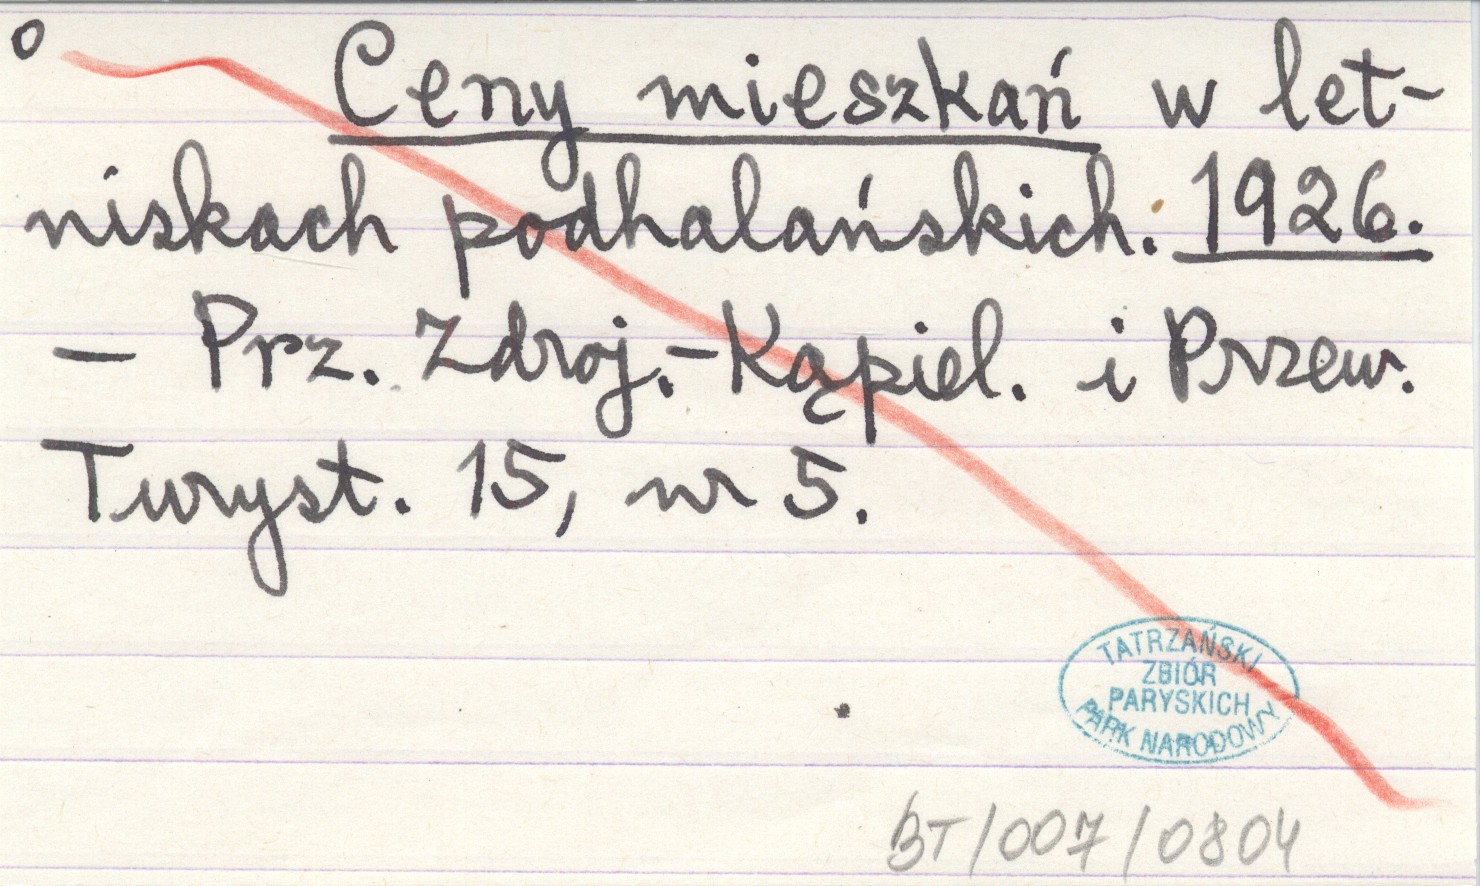 o Ceny mieszkań w let-
niskach podhalańskich. 1926.
— Prz. Zdroj.-Kąpiel. i Przew.
Turyst. 15, nr 5.
TATRZAŃSKI
ZBIÓR
PARYSKICH
PARK NARODOWY
BT/007/0804